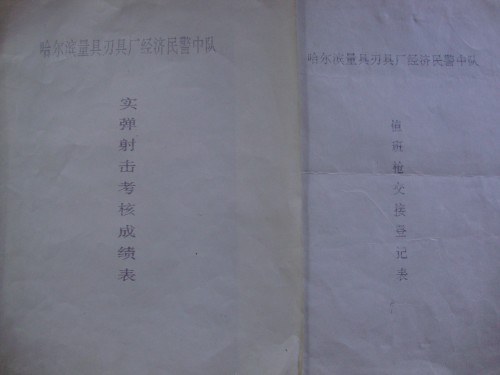 哈尔滨量具刃具厂经济民警中队
实弹射击考核成绩表
哈尔滨量具刃具厂经济民警中队
值班枪交接登记表